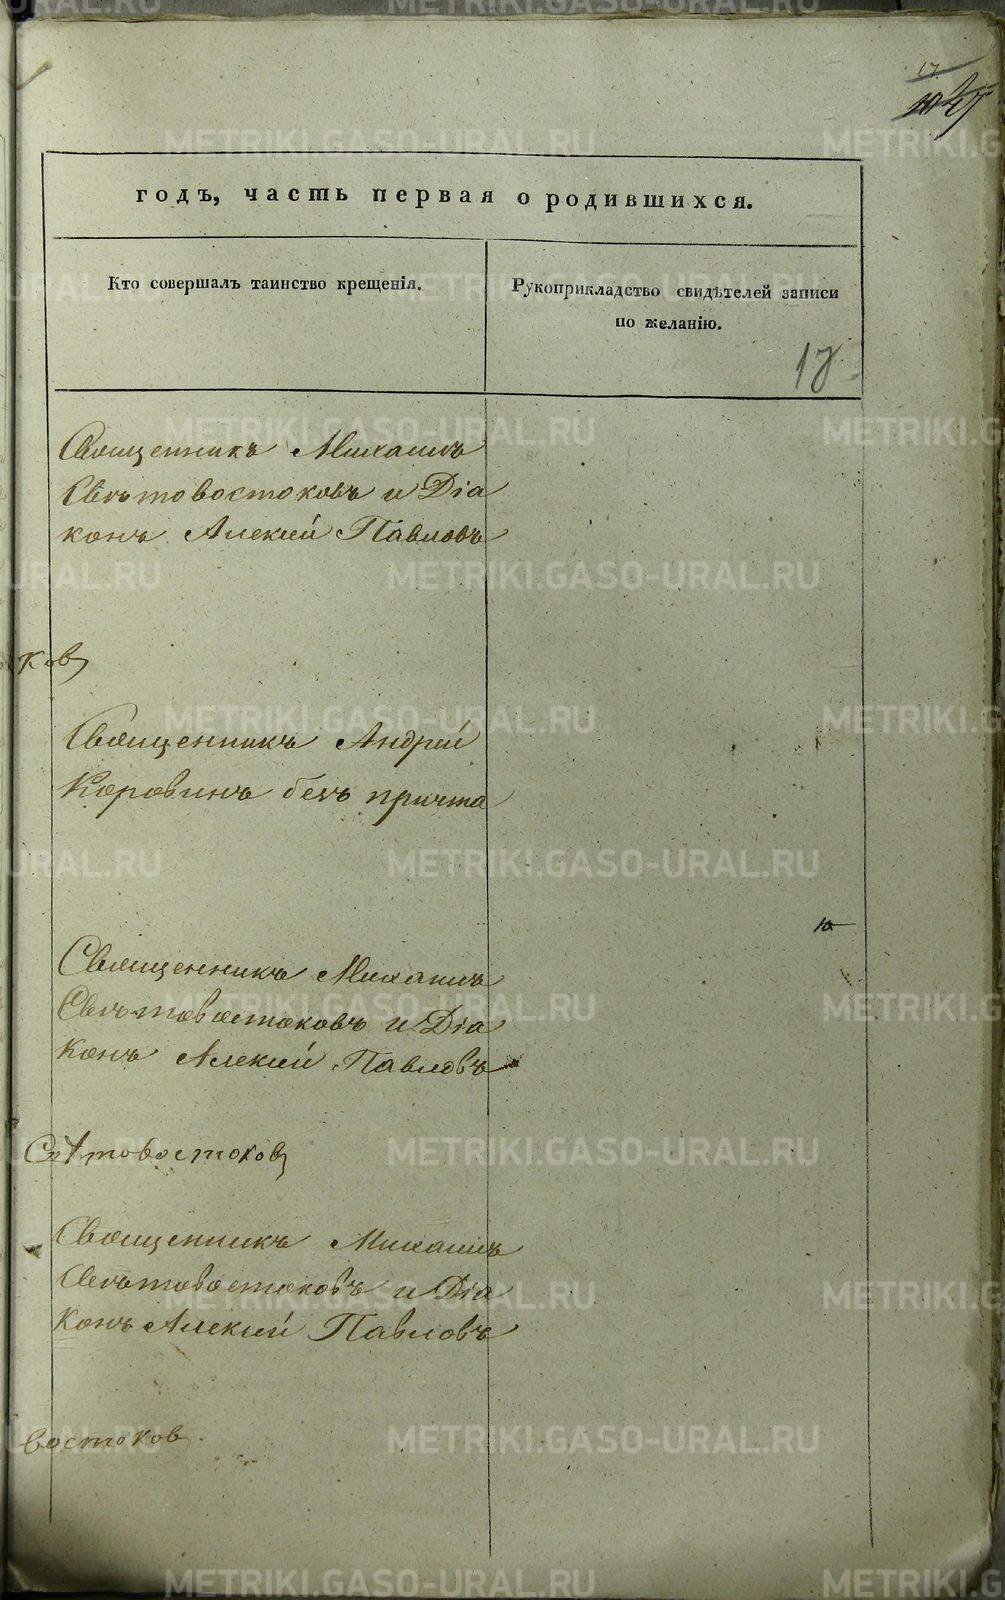 17
годъ, часть первая о родившихся.
Кто совершалъ таинство крещенія.
Рукоприкладство свидѣтелей записи
по желанію.
Священникъ Михаилъ
Свѣтовостоковъ и Діа
конъ Алексій Павловъ
ковъ
Священникъ Андрей
Коровинъ безъ причта
10
Священникъ Михаилъ
Свѣтовостоковъ и Діа
конъ Алексій Павловъ
Свѣтовостоковъ
Священникъ Михаилъ
Свѣтовостоковъ и Діа
конъ Алексій Павловъ
востоковъ.
METRIKI.GASO-URAL.RU